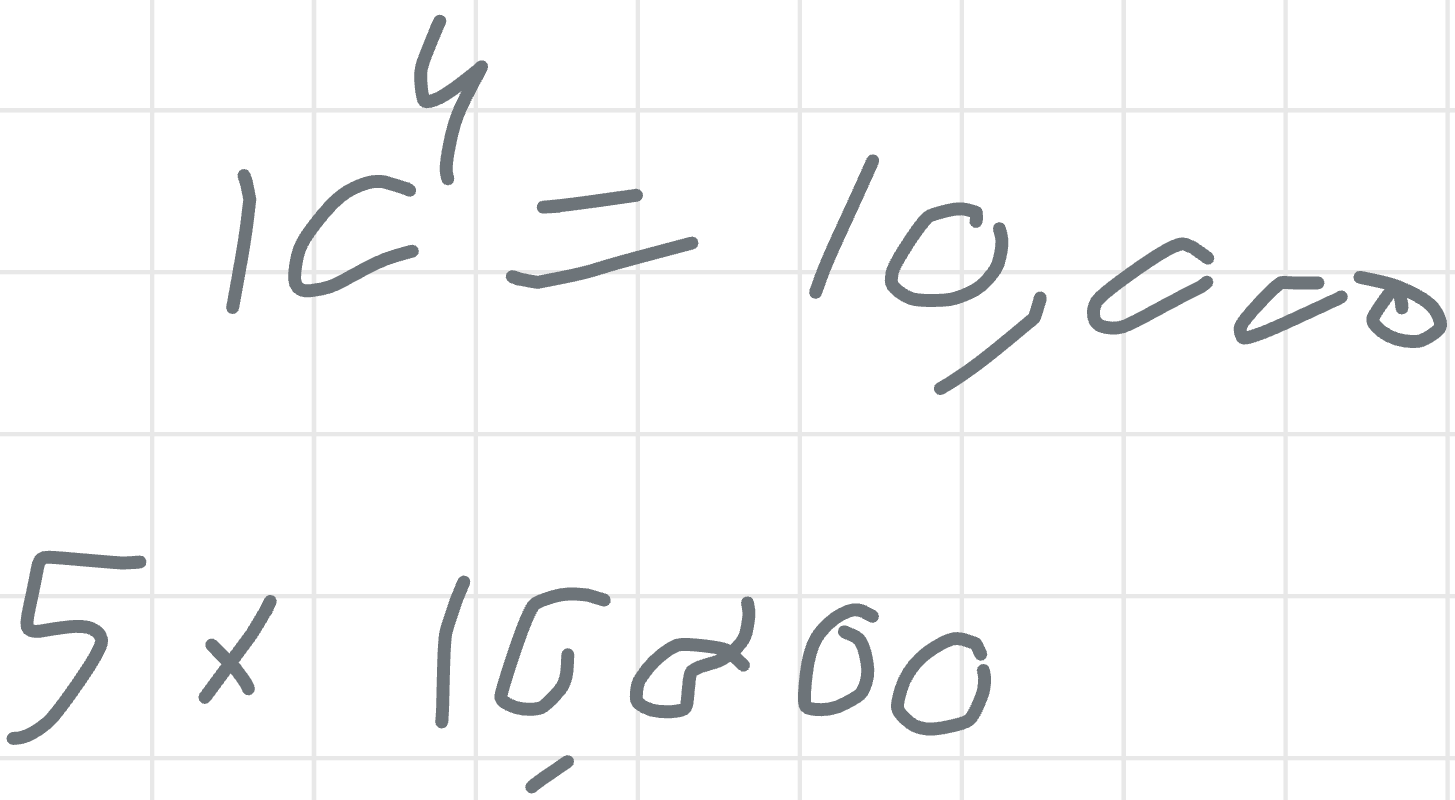 10⁴ = 10,000
5 × 10,000